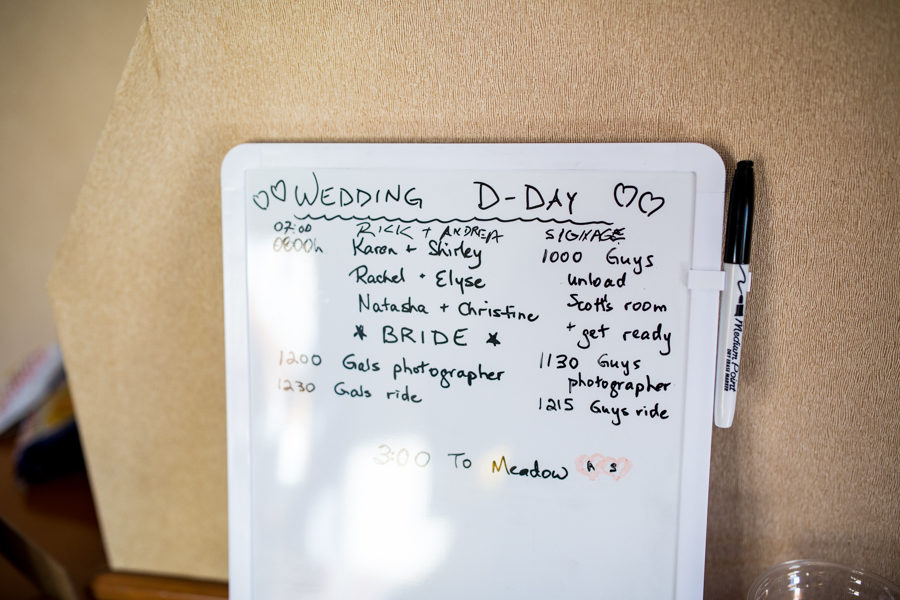 WEDDING D-DAY
07:00 RICK + ANDREA SIGNAGE
0800h Karen + Shirley
1000 Guys
Rachel + Elyse
unload
Natasha + Christine
Scott's room
* BRIDE *
+ get ready
1200 Gals photographer
1130 Guys
photographer
1230 Gals ride
1215 Guys ride
3:00 To Meadow A S
Medium Point
DRY ERASE MARKER